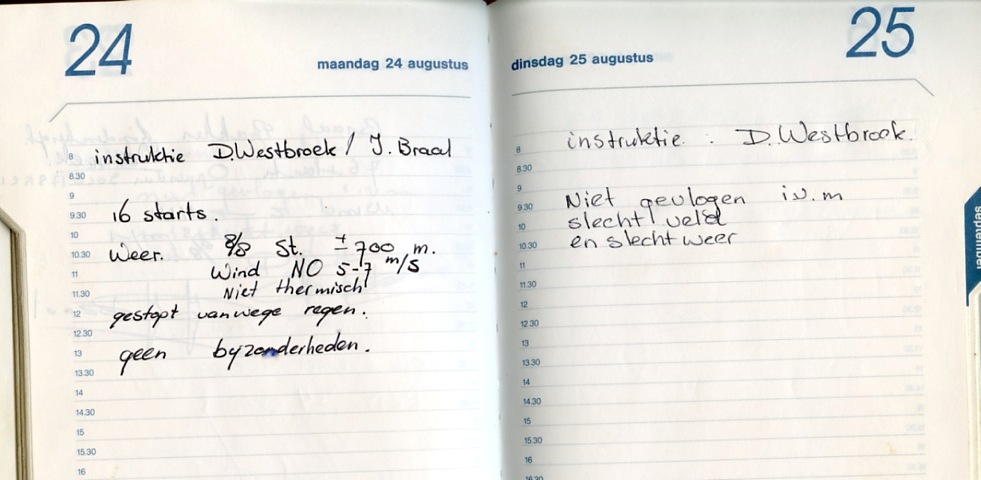 24
maandag 24 augustus
8 instruktie D.Westbroek / J. Braal
8.30
9
9.30 16 starts.
10
10.30 Weer. 8/8 St. ± 700 m.
11 Wind NO 5-7 m/s
11.30 Niet thermisch
12 gestopt vanwege regen.
12.30
13 geen byzonderheden.
13.30
14
14.30
15
15.30
16
25
dinsdag 25 augustus
8 instruktie : D.Westbroek.
8.30
9
9.30 Niet gevlogen i.v.m
10 slecht veld
10.30 en slecht weer
11
11.30
12
12.30
13
13.30
14
14.30
15
15.30
16
16.30
september